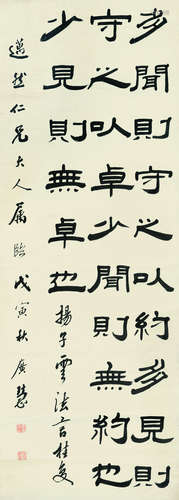 多聞則守之以約多見則
守之以卓少聞則無約也
少見則無卓也
揚子雲法言桂复
邁然仁兄大人属臨戊寅秋廣